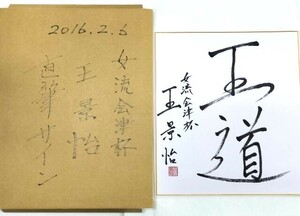 2016.2.6
女流会津杯
王景怡
直筆サイン
王道
女流会津杯
王景怡